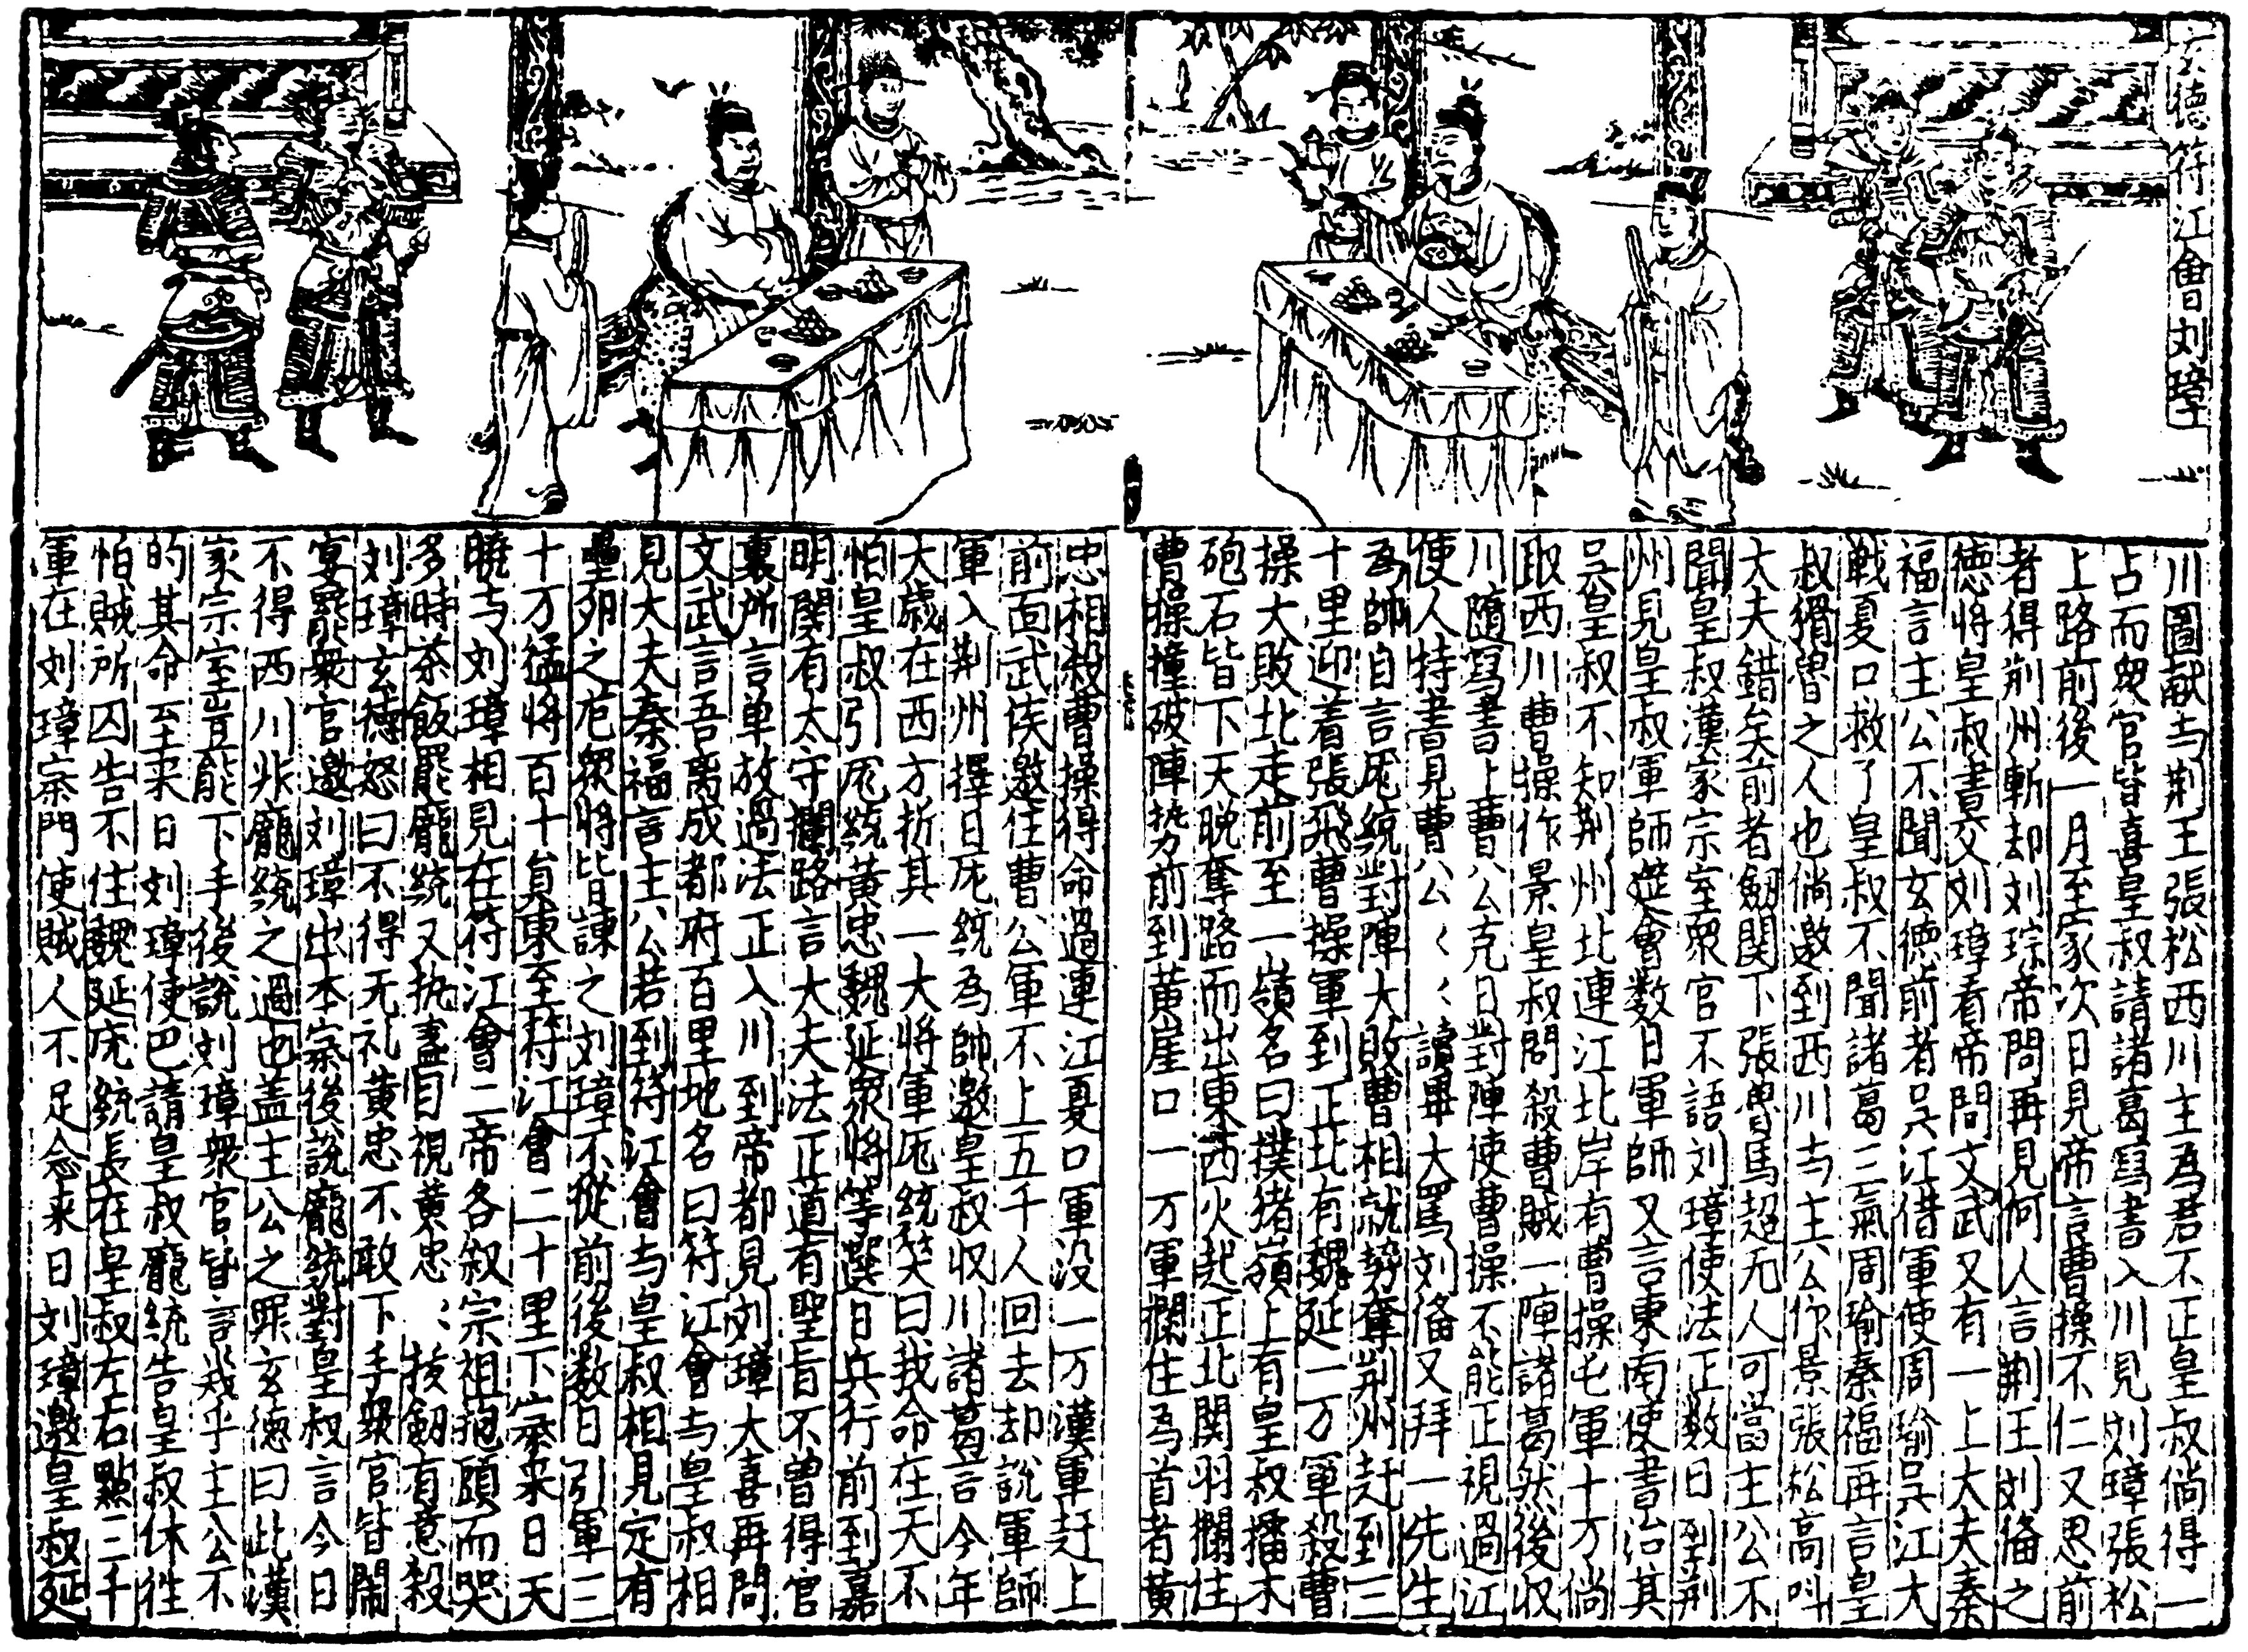 玄德符江會刘璋
川圖献与荆王張松西川主為君不正皇叔倘得一
占而衆官皆喜皇叔請諸葛寫書入川見刘璋張松
上路前後一月至家次日見帝言曹操不仁又思前
者得荆州斬却刘琮帝問再見何人言荆王刘俻之
徳将皇叔書与刘璋看帝問文武又有一上大夫秦
福言主公不聞玄徳前者吴江借軍使周瑜吴江大
戦夏口救了皇叔不聞諸葛三氣周瑜秦福再言皇
叔猾曽之人也倘邀到西川与主公你景張松高呌
大夫錯矣前者劒関下張魯馬超无人可當主公不
聞皇叔漢家宗室衆官不語刘璋使法正数日到荆
州見皇叔軍師筵會数日軍師又言東南使書沿其
吴皇叔不知荆州北連江北岸有曹操屯軍十万倘
取西川曹操作景皇叔問殺曹賊一陣諸葛然後収
川隨寫書上曹公克日對陣使曹操不能正視過江
使人持書見曹公〻〻讀畢大罵刘俻又拜一先生
為帥自言厐統對陣大敗曹相就势奪荆州赶到三
十里迎着張飛曹操軍到正北有魏延一万軍殺曹
操大敗北走前至一嶺名曰撲猪嶺上有皇叔擂木
砲石皆下天晚奪路而出東西火起正北関羽攔住
曹操撞破陣势前到黄崖口一万軍攔住為首者黄
忠相殺曹操得命過連江夏口軍没一万漢軍赶上
前面武侯邀住曹公軍不上五千人回去却說軍師
軍入荆州擇日厐統為帥邀皇叔収川諸葛言今年
大歳在西方折其一大将軍厐統笑曰我命在天不
怕皇叔引厐統黄忠魏延衆将等選日兵行前到嘉
明関有太守攔路言大夫法正道有聖旨不曽得官
裏所言单放過法正入川到帝都見刘璋大喜再問
文武言吾离成都府百里地名曰符江會与皇叔相
見大夫秦福言主公若到符江會与皇叔相見定有
壘卵之危衆将皆諫之刘璋不從前後数日引軍三
十万猛将百十員東至符江會二十里下寨来日天
曉与刘璋相見在符江會二帝各叙宗祖抱頭而哭
多時茶飯罷龐統又执盞目視黄忠〻〻拔劒有意殺
刘璋玄徳怒曰不得无礼黄忠不敢下手衆官皆閙
宴罷衆官邀刘璋出本寨後說龐統對皇叔言今日
不得西川非龐統之過也盖主公之罪玄徳曰此漢
家宗室豈能下手後說刘璋衆官皆言哉乎主公不
的其命至来日刘璋使巴請皇叔龐統告皇叔休徃
怕賊所囚告不住魏延厐統長在皇叔左右點三千
軍在刘璋寨門使賊人不足念来日刘璋邀皇叔筵